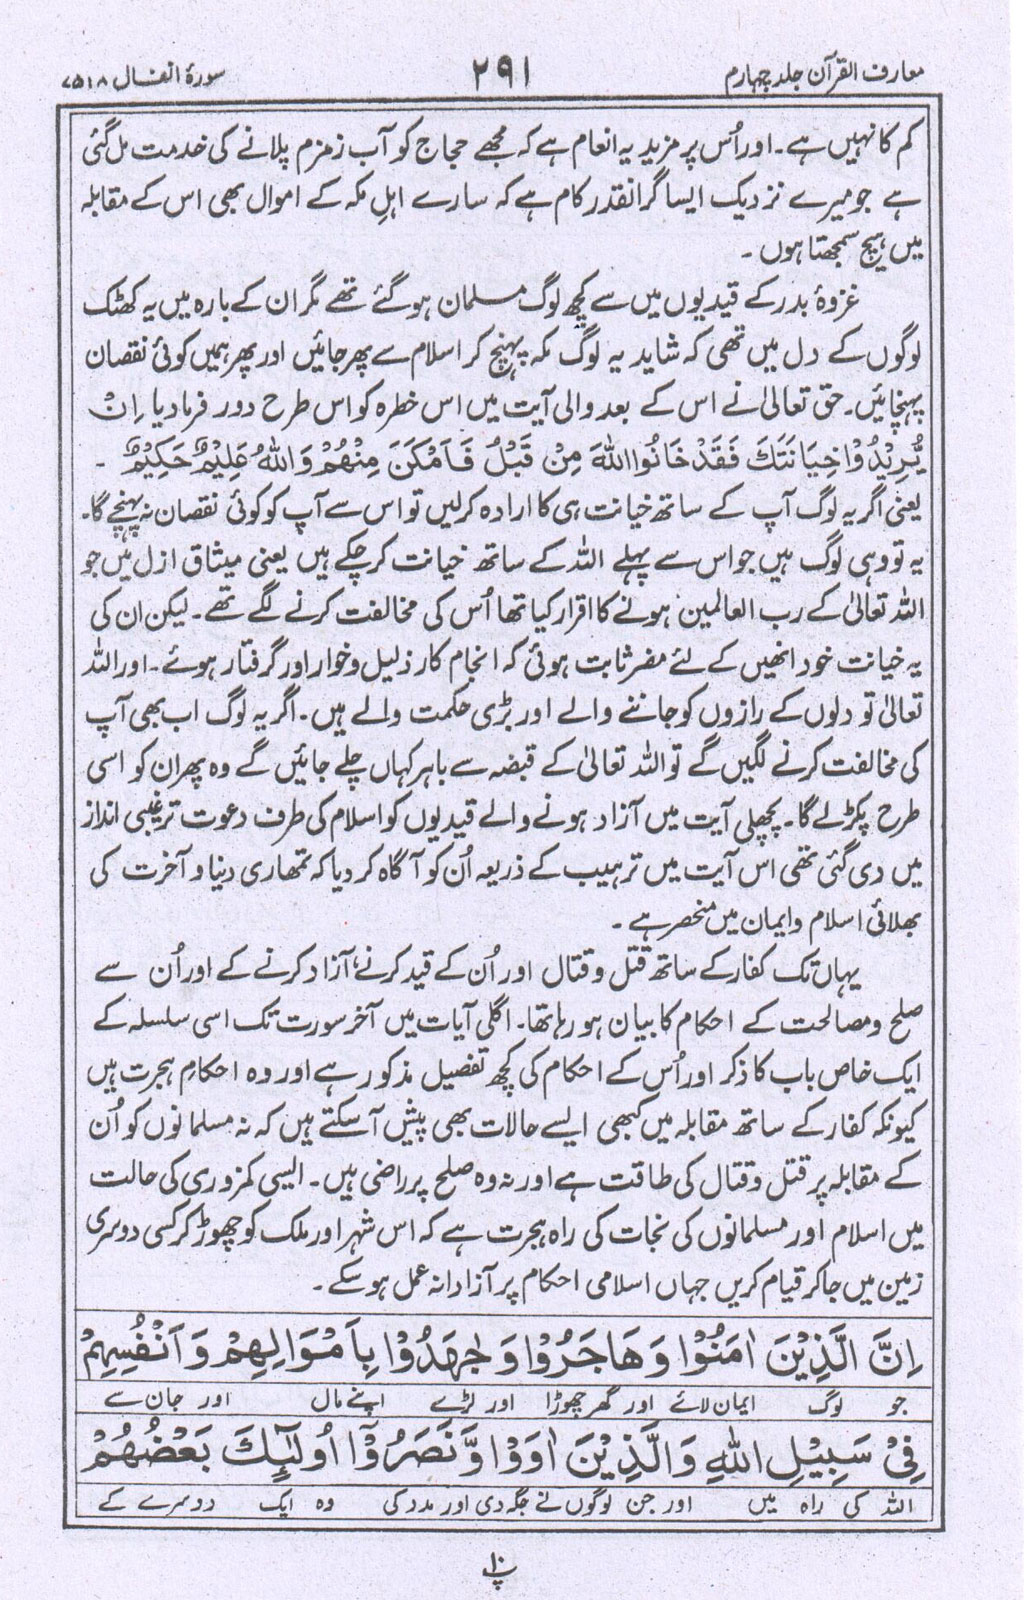 معارف القرآن جلد چہارم
۲۹۱
سورۂ انفال ۸ : ۷۵
کم کا نہیں ہے۔ اور اُس پر مزید یہ انعام ہے کہ مجھے حجاج کو آب زمزم پلانے کی خدمت مل گئی
ہے جو میرے نزدیک ایسا گرانقدر کام ہے کہ سارے اہلِ مکہ کے اموال بھی اس کے مقابلہ
میں ہیچ سمجھتا ہوں۔
غزوۂ بدر کے قیدیوں میں سے کچھ لوگ مسلمان ہو گئے تھے مگر ان کے بارہ میں یہ کھٹک
لوگوں کے دل میں تھی کہ شاید یہ لوگ مکہ پہنچ کر اسلام سے پھر جائیں اور پھر ہمیں کوئی نقصان
پہنچائیں۔ حق تعالیٰ نے اس کے بعد والی آیت میں اس خطرہ کو اس طرح دور فرما دیا اِنْ
یُّرِیْدُوْا خِیَانَتَکَ فَقَدْ خَانُوا اللہَ مِنْ قَبْلُ فَاَمْکَنَ مِنْہُمْ وَاللہُ عَلِیْمٌ حَکِیْمٌ ۔
یعنی اگر یہ لوگ آپ کے ساتھ خیانت ہی کا ارادہ کرلیں تو اس سے آپ کو کوئی نقصان نہ پہنچے گا۔
یہ تو وہی لوگ ہیں جو اس سے پہلے اللہ کے ساتھ خیانت کر چکے ہیں یعنی میثاق ازل میں جو
اللہ تعالیٰ کے رب العالمین ہونے کا اقرار کیا تھا اُس کی مخالفت کرنے لگے تھے۔ لیکن ان کی
یہ خیانت خود انھیں کے لئے مضر ثابت ہوئی کہ انجام کار ذلیل و خوار اور گرفتار ہوئے۔ اور اللہ
تعالیٰ تو دلوں کے رازوں کو جاننے والے اور بڑی حکمت والے ہیں۔ اگر یہ لوگ اب بھی آپ
کی مخالفت کرنے لگیں گے تو اللہ تعالیٰ کے قبضہ سے باہر کہاں چلے جائیں گے وہ پھر ان کو اسی
طرح پکڑ لے گا۔ پچھلی آیت میں آزاد ہونے والے قیدیوں کو اسلام کی طرف دعوت ترغیبی انداز
میں دی گئی تھی اس آیت میں ترہیب کے ذریعہ اُن کو آگاہ کر دیا کہ تمھاری دنیا و آخرت کی
بھلائی اسلام و ایمان میں منحصر ہے۔
یہاں تک کفار کے ساتھ قتل و قتال اور اُن کے قید کرنے، آزاد کرنے کے اور اُن سے
صلح و مصالحت کے احکام کا بیان ہو رہا تھا۔ اگلی آیات میں آخر سورت تک اسی سلسلہ کے
ایک خاص باب کا ذکر اور اُس کے احکام کی کچھ تفصیل مذکور ہے اور وہ احکامِ ہجرت ہیں
کیونکہ کفار کے ساتھ مقابلہ میں کبھی ایسے حالات بھی پیش آ سکتے ہیں کہ نہ مسلمانوں کو اُن
کے مقابلہ پر قتل و قتال کی طاقت ہے اور نہ وہ صلح پر راضی ہیں۔ ایسی کمزوری کی حالت
میں اسلام اور مسلمانوں کی نجات کی راہ ہجرت ہے کہ اس شہر اور ملک کو چھوڑ کر کسی دوسری
زمین میں جا کر قیام کریں جہاں اسلامی احکام پر آزادانہ عمل ہو سکے۔
اِنَّ الَّذِیْنَ اٰمَنُوْا وَ هَاجَرُوْا وَ جٰهَدُوْا بِاَمْوَالِهِمْ وَ اَنْفُسِهِمْ
جو لوگ ایمان لائے اور گھر چھوڑا اور لڑے اپنے مال اور جان سے
فِیْ سَبِیْلِ اللّٰهِ وَ الَّذِیْنَ اٰوَوْا وَّ نَصَرُوْۤا اُولٰٓئِكَ بَعْضُهُمْ
اللہ کی راہ میں اور جن لوگوں نے جگہ دی اور مدد کی وہ ایک دوسرے کے
پ۱۰